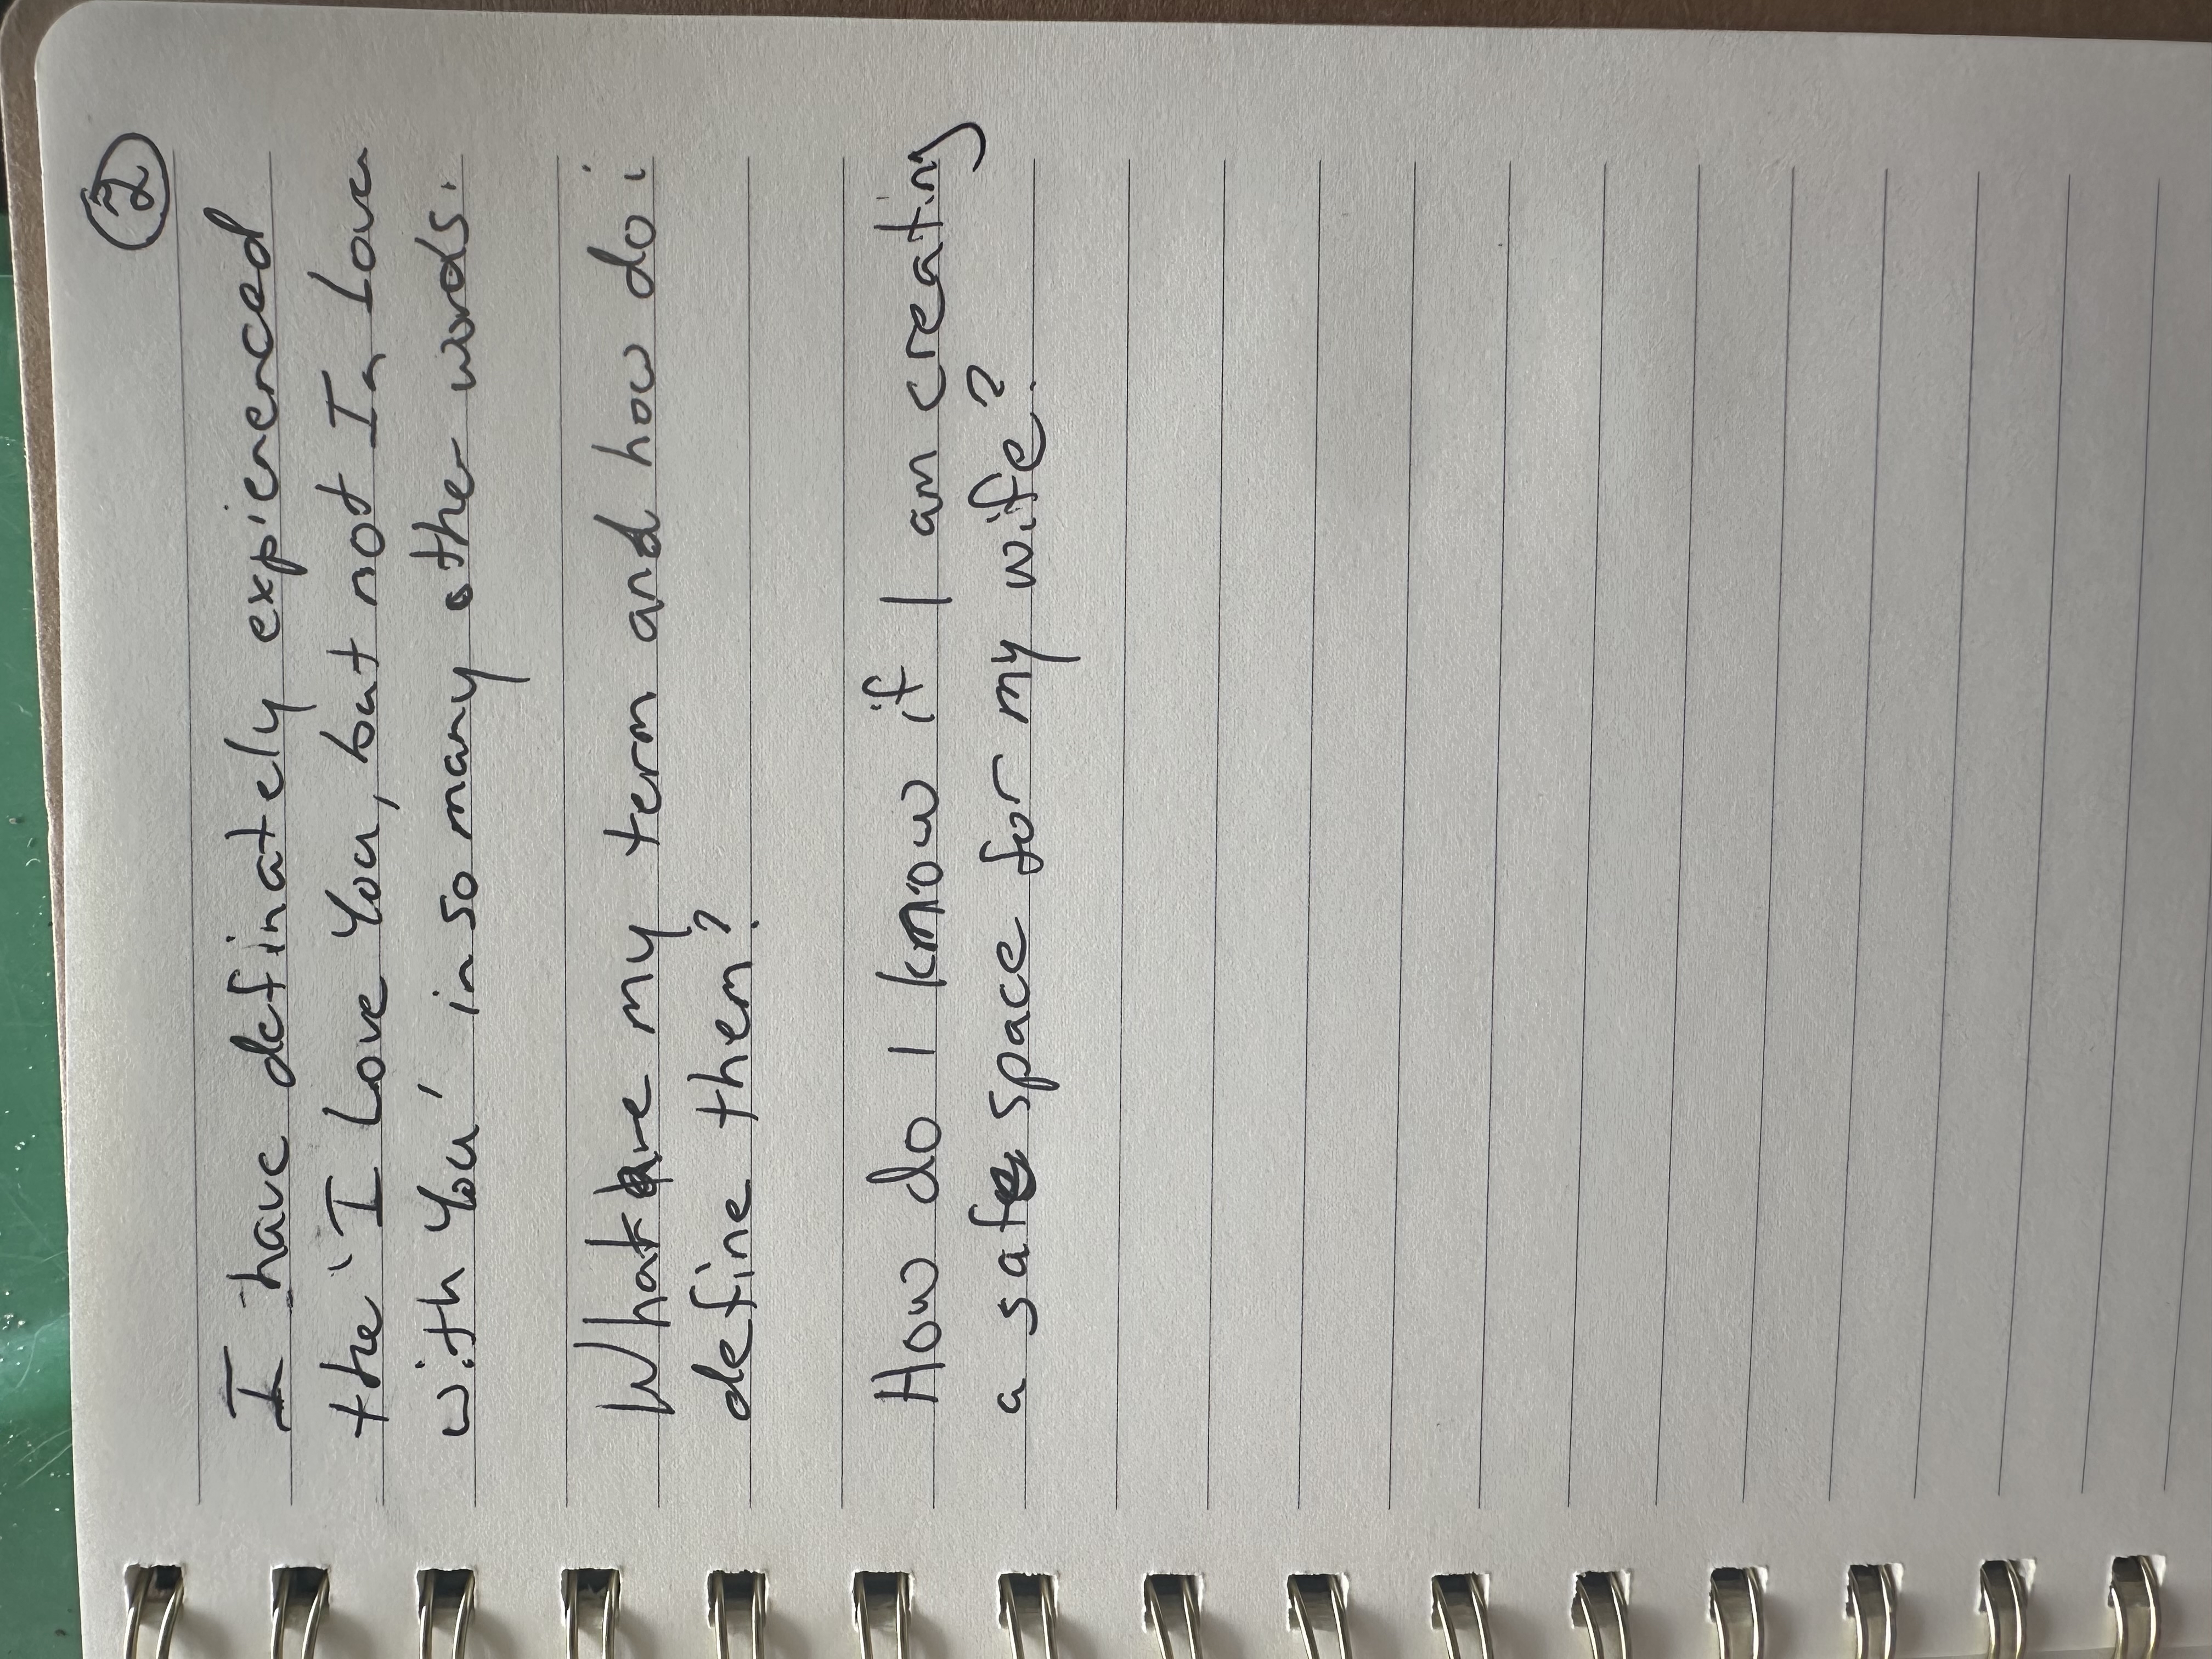 2
I have definately expierenced
the 'I Love You, but not In Love
with You' in so many other words.
What are my term and how do i
define them?
How do I know if I am creating
a safe space for my wife?